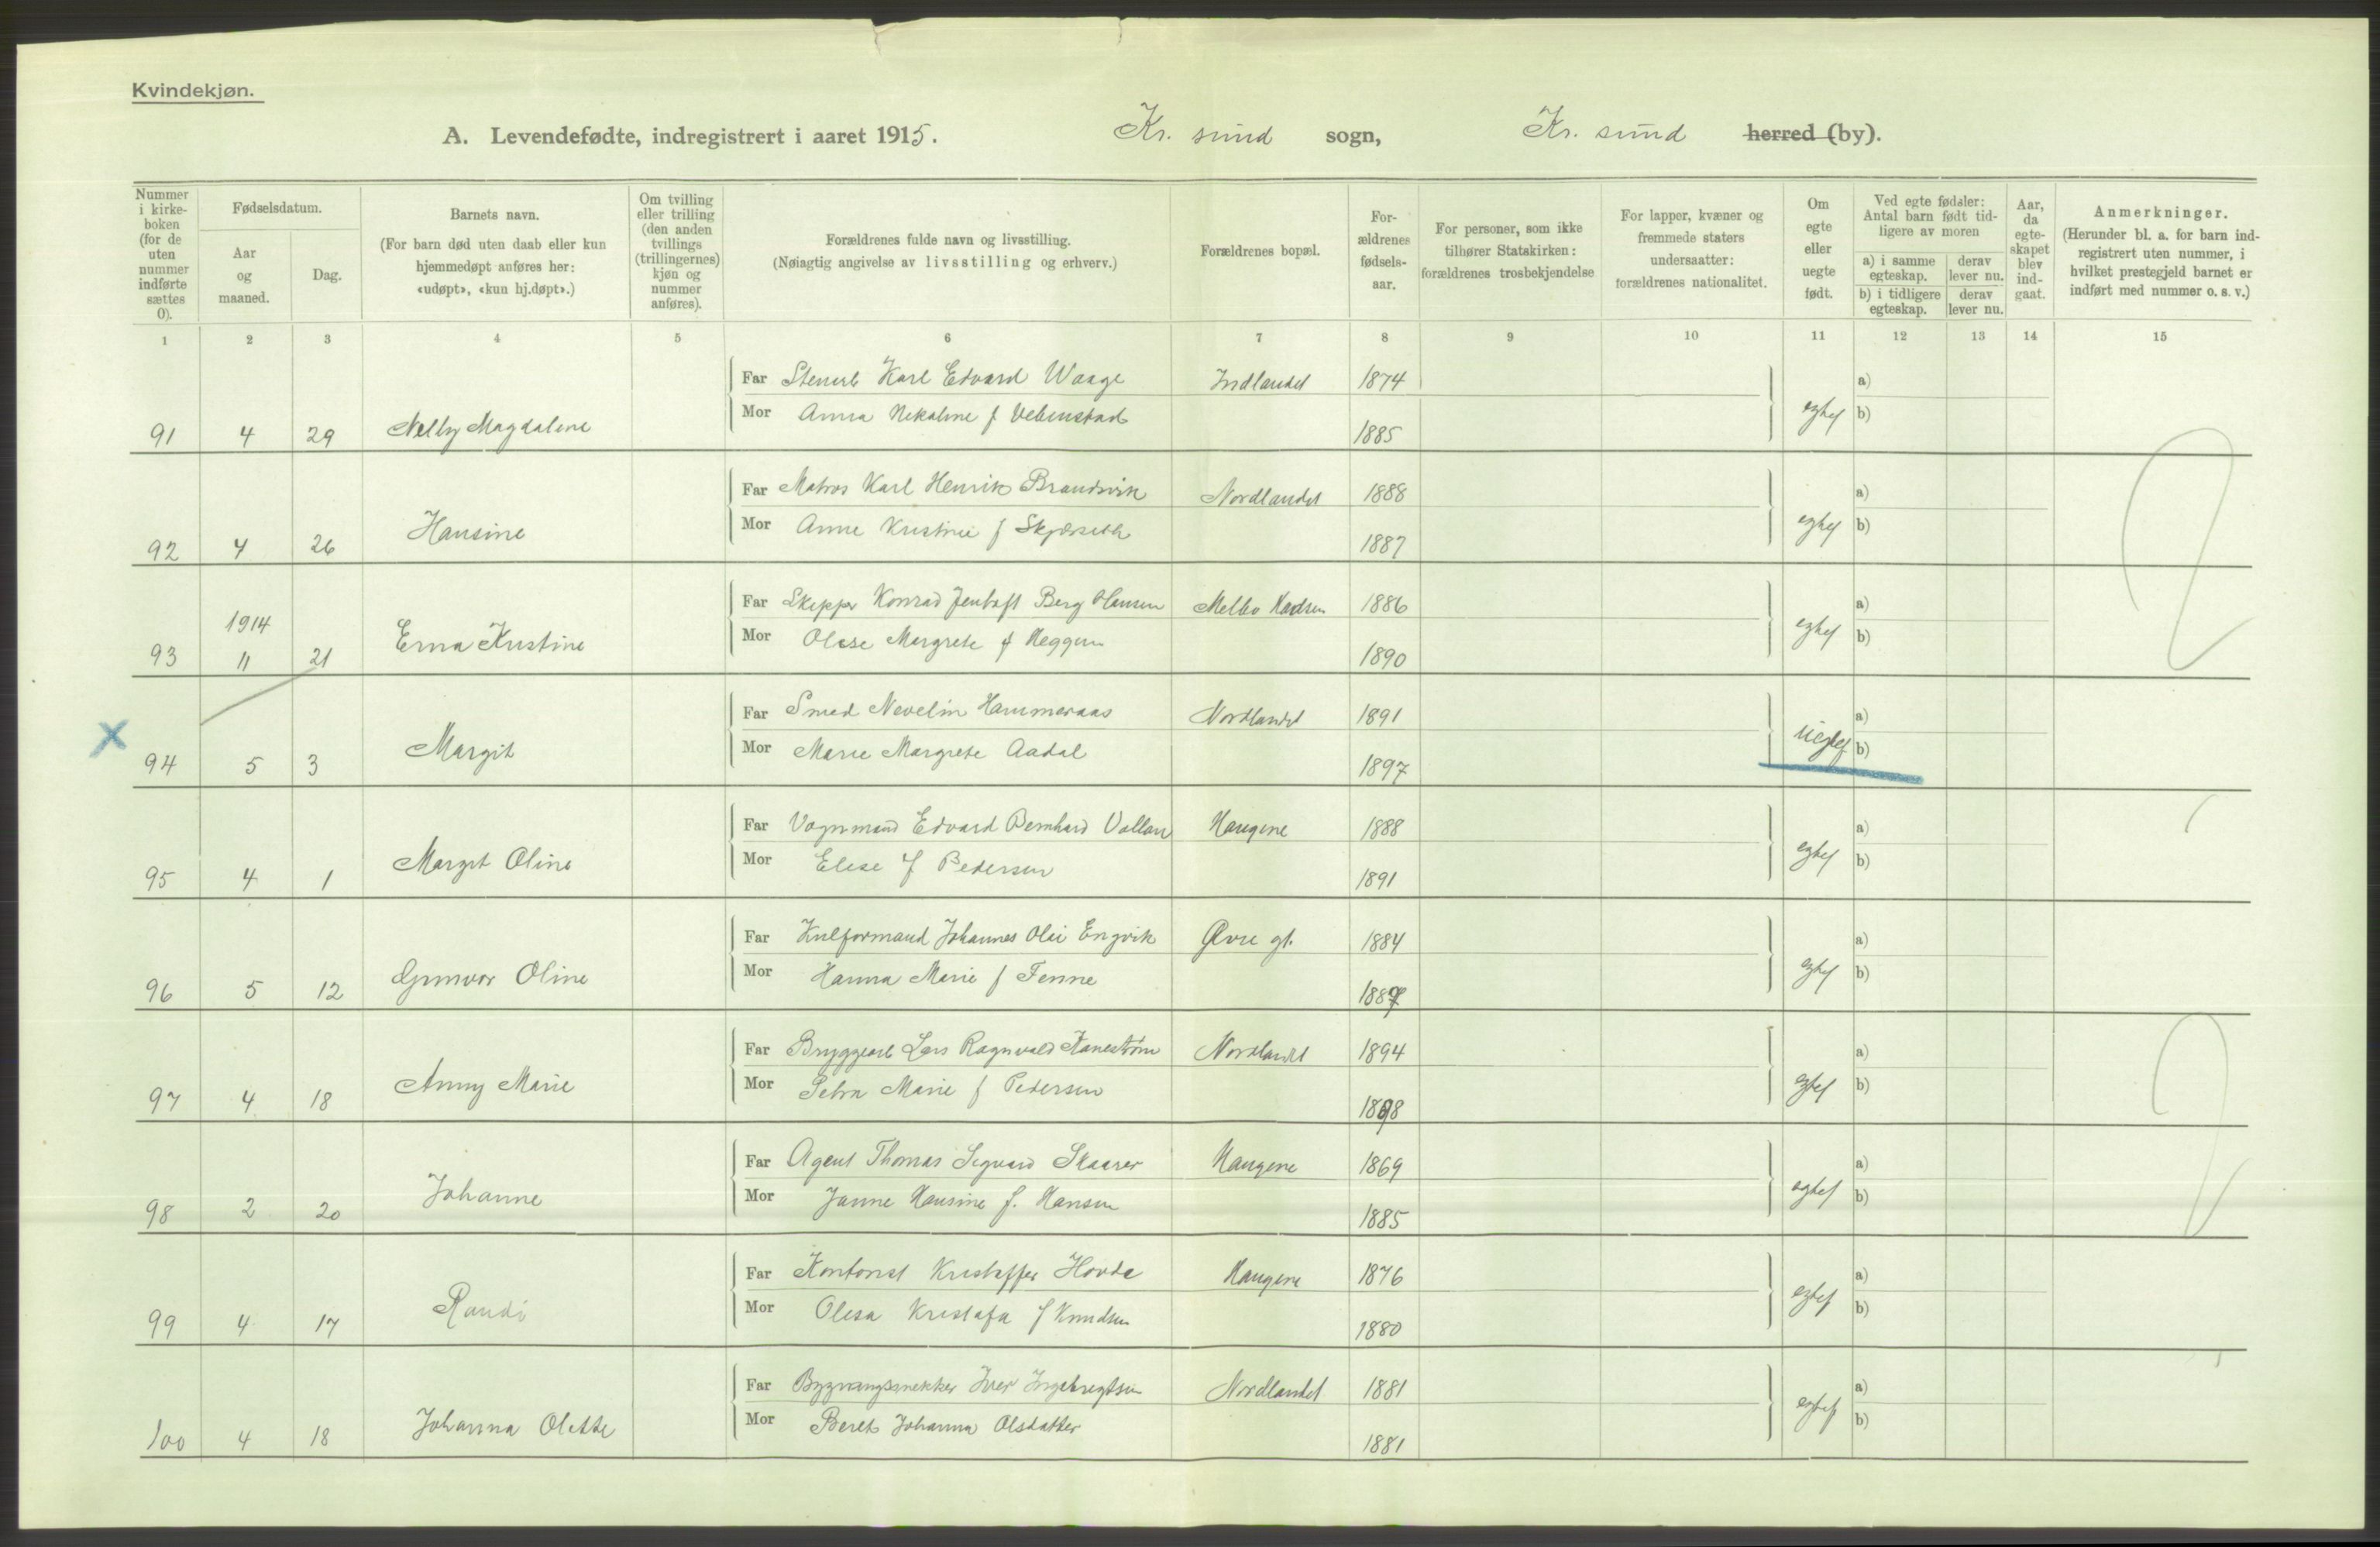 Kvindekjøn.
A. Levendefødte, indregistrert i aaret 1915. Kr. sund sogn, Kr. sund herred (by).
Nummer i kirke-boken (for de uten nummer indførte sættes 0).
Fødselsdatum.
Aar og maaned.
Dag.
Barnets navn.
(For barn død uten daab eller kun hjemmedøpt anføres her: «udøpt», «kun hj.døpt».)
Om tvilling eller trilling (den anden tvillings (trillingernes) kjøn og nummer anføres).
Forældrenes fulde navn og livsstilling.
(Nøiagtig angivelse av livsstilling og erhverv.)
Forældrenes bopæl.
For-ældrenes fødsels-aar.
For personer, som ikke tilhører Statskirken: forældrenes trosbekjendelse
For lapper, kvæner og fremmede staters undersaatter: forældrenes nationalitet.
Om egte eller uegte født.
Ved egte fødsler: Antal barn født tid-ligere av moren
a) i samme egteskap. derav lever nu.
b) i tidligere egteskap. derav lever nu.
Aar, da egte-skapet blev ind-gaat.
Anmerkninger.
(Herunder bl. a. for barn ind-registrert uten nummer, i hvilket prestegjeld barnet er indført med nummer o. s. v.)
1 2 3 4 5 6 7 8 9 10 11 12 13 14 15
Far Karl Edvard Waage Indlandet 1874 a)
91 4 29 Nelly Magdalene Mor Anna f 1885 egtef b)
Far Matros Karl Henrik Brandvik Nordlandet 1888 a)
92 4 26 Hansine Mor Anne Kristine f Skjørseth 1887 egtef b)
Far Skipper Konrad Jentoft Berg Hansen Melbo Hadsen 1886 a)
93 1914 11 21 Erna Kristine Mor Margrete f Heggem 1890 egtef b)
Far Smed Nevelin Hammeraas Nordlandet 1891 a)
X 94 5 3 Margit Mor Marie Margrete Aadal 1897 uegtef b)
Far Vognmand Edvard Bernhard Vollan Haugene 1888 a)
95 4 1 Margit Oline Mor Elise f Pedersen 1891 egtef b)
Far Kulformand Johannes Olai Engvik Øvre gt. 1884 a)
96 5 12 Gunvor Oline Mor Hanna Marie f Fenne 1887 egtef b)
Far Bryggearb Lars Ragnvald Nordlandet 1894 a)
97 4 18 Anny Marie Mor Petra Marie f Pedersen 1898 egtef b)
Far Agent Thomas Sigvard Skaarer Haugene 1869 a)
98 2 20 Johanne Mor Janne Hansine f. Hansen 1885 egtef b)
Far Kontorist Kristoffer Hovde Haugene 1876 a)
99 4 17 Randi Mor Olesa Kristofa f Knudsen 1880 egtef b)
Far Bygningssnekker Iver Ingebregtsen Nordlandet 1881 a)
100 4 18 Johanna Olette Mor Beret Johanna Olsdatter 1881 egtef b)